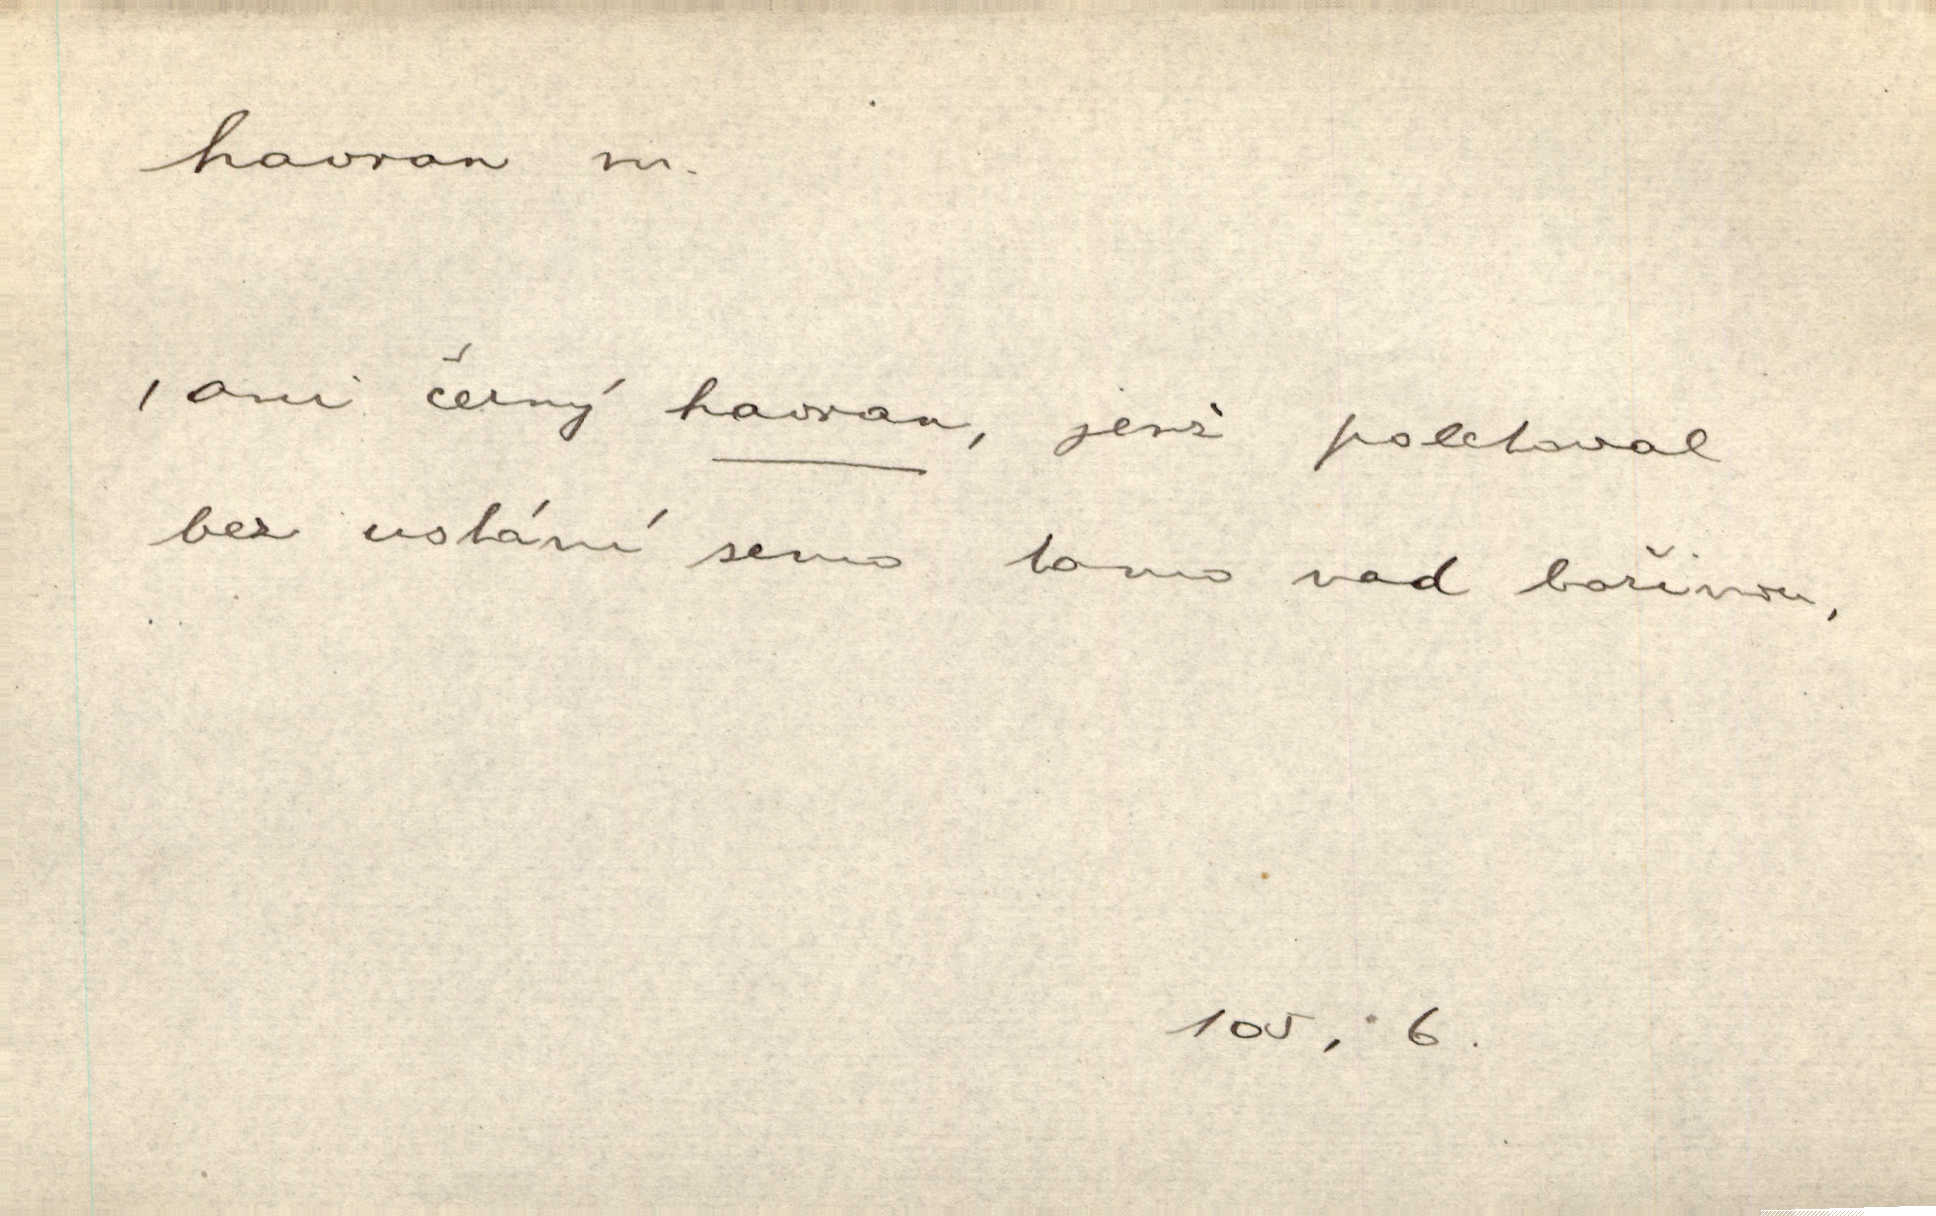 havran m.
, ani černý havran, jenž poletoval
bez ustání semo tamo nad bařinou,
105, 6.